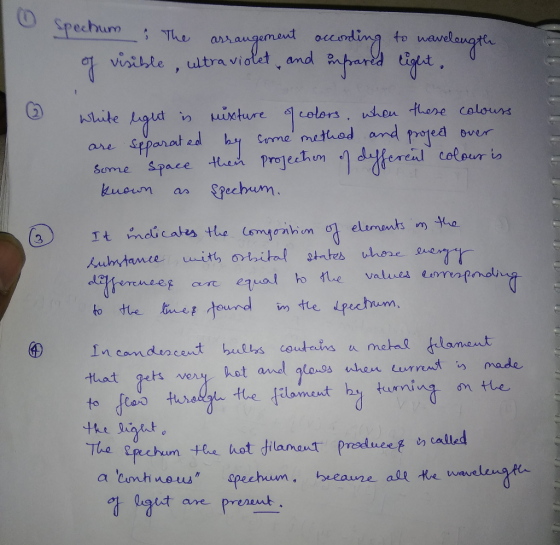 ① Spectrum : The arrangement according to wavelength
of visible, ultraviolet, and infrared light.
② White light is mixture of colors. when these colours
are separated by some method and project over
some space then projection of different colour is
known as Spectrum.
③ It indicates the composition of elements in the
substance with orbital states whose energy
differences are equal to the values corresponding
to the lines found in the spectrum.
④ Incandescent bulbs contains a metal filament
that gets very hot and glows when current is made
to flow through the filament by turning on the
the light.
The Spectrum the hot filament produces is called
a "continous" spectrum. because all the wavelength
of light are present.